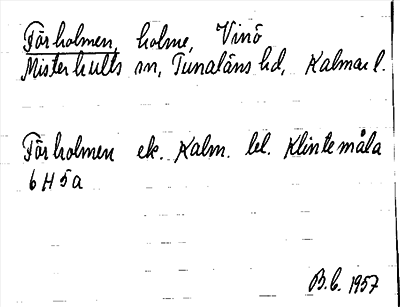 Fårholmen, holme, Vinö
Misterhults sn, Tunaläns hd, Kalmar l.
Fårholmen ek. Kalm. bl. Klintemåla
6 H 5a
B.C. 1957